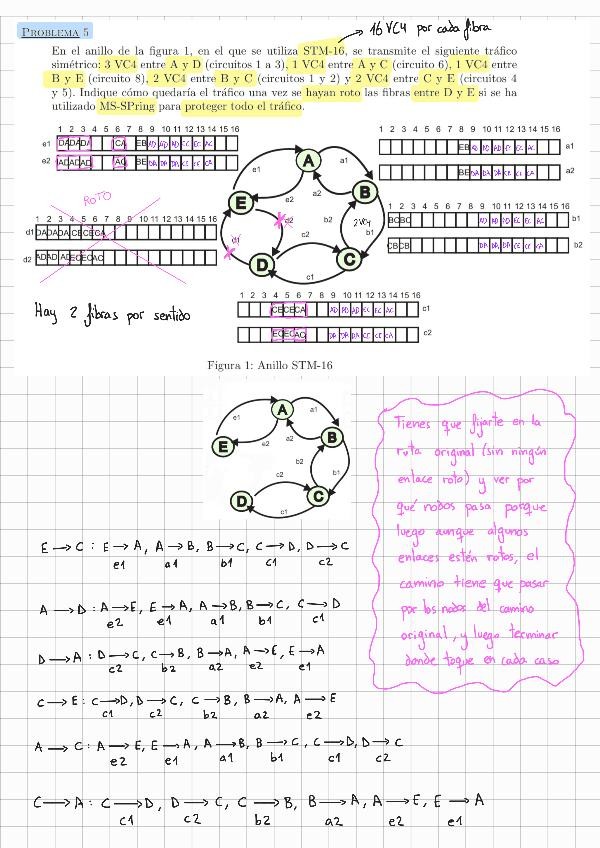 PROBLEMA 5
→ 16 VC4 por cada fibra
En el anillo de la figura 1, en el que se utiliza STM-16, se transmite el siguiente tráfico
simétrico: 3 VC4 entre A y D (circuitos 1 a 3), 1 VC4 entre A y C (circuito 6), 1 VC4 entre
B y E (circuito 8), 2 VC4 entre B y C (circuitos 1 y 2) y 2 VC4 entre C y E (circuitos 4
y 5). Indique cómo quedaría el tráfico una vez se hayan roto las fibras entre D y E si se ha
utilizado MS-SPring para proteger todo el tráfico.
1 2 3 4 5 6 7 8 9 10 11 12 13 14 15 16
e1 DA DA DA CA EB AD AD AD EC EC AC
e2 AD AD AD AC BE DA DA DA CE CE CA
1 2 3 4 5 6 7 8 9 10 11 12 13 14 15 16
EB AD AD AD EC EC AC a1
BE DA DA DA CE CE CA a2
ROTO
1 2 3 4 5 6 7 8 9 10 11 12 13 14 15 16
d1 DA DA DA CE CE CA
d2 AD AD AD EC EC AC
1 2 3 4 5 6 7 8 9 10 11 12 13 14 15 16
BC BC AD AD AD EC EC AC b1
CB CB DA DA DA CE CE CA b2
A
B
C
D
E
e1
a1
e2
a2
d2
b2
2VC4
b1
d1
c2
c1
Hay 2 fibras por sentido
1 2 3 4 5 6 7 8 9 10 11 12 13 14 15 16
CE CE CA AD AD AD EC EC AC c1
EC EC AC DA DA DA CE CE CA c2
Figura 1: Anillo STM-16
A
B
C
D
E
e1
a1
e2
a2
b2
b1
c2
c1
Tienes que fijarte en la
ruta original (sin ningún
enlace roto) y ver por
qué nodos pasa porque
luego aunque algunos
enlaces estén rotos, el
camino tiene que pasar
por los nodos del camino
original, y luego terminar
donde toque en cada caso
E → C : E → A, A → B, B → C, C → D, D → C
e1 a1 b1 c1 c2
A → D : A → E, E → A, A → B, B → C, C → D
e2 e1 a1 b1 c1
D → A : D → C, C → B, B → A, A → E, E → A
c2 b2 a2 e2 e1
C → E : C → D, D → C, C → B, B → A, A → E
c1 c2 b2 a2 e2
A → C : A → E, E → A, A → B, B → C, C → D, D → C
e2 e1 a1 b1 c1 c2
C → A : C → D, D → C, C → B, B → A, A → E, E → A
c1 c2 b2 a2 e2 e1